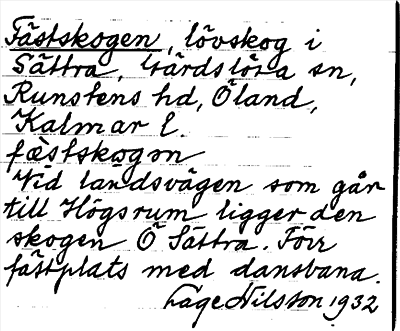 Fästskogen, lövskog i
Sättra, Gärdslösa sn,
Runstens hd, Öland,
Kalmar l.
fæ̀stskogən
Vid landsvägen som går
till Högsrum ligger den
skogen Ö Sättra. Förr
fästplats med dansbana.
Lage Nilsson 1932